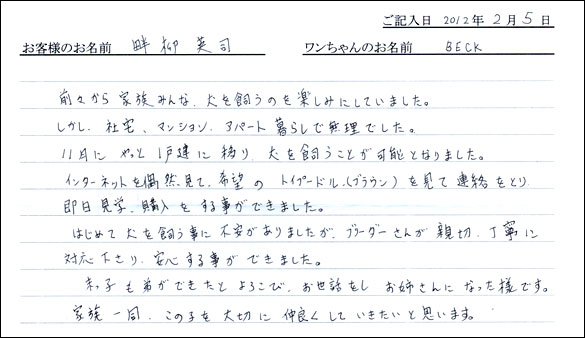 ご記入日 2012年 2月 5日
お客様のお名前 畔柳 英司 ワンちゃんのお名前 BECK
前々から 家族みんな、犬を飼うのを楽しみにしていました。
しかし、社宅、マンション、アパート暮らしで無理でした。
11月に やっと 1戸建に移り、犬を飼うことが可能となりました。
インターネットを偶然、見て、希望の トイプードル、(ブラウン) を見て連絡をとり、
即日見学、購入をする事ができました。
はじめて犬を飼う事に不安がありましたが、ブリーダーさんが親切、丁寧に
対応下さり、安心する事ができました。
末っ子も弟ができたとよろこび、お世話をし お姉さんになった様です。
家族一同、この子を大切に仲良くしていきたいと思います。